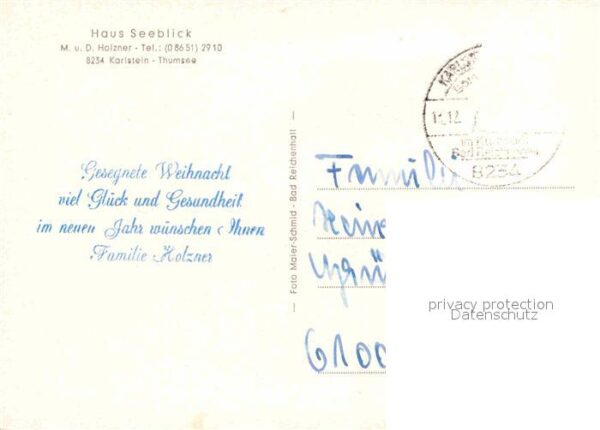 Haus Seeblick
M. u. D. Holzner - Tel.: (0 86 51) 29 10
8234 Karlstein - Thumsee
Gesegnete Weihnacht
viel Glück und Gesundheit
im neuen Jahr wünschen Ihnen
Familie Holzner
Foto Maier-Schmid - Bad Reichenhall
8234
Famili
Heine
6100
privacy protection
Datenschutz